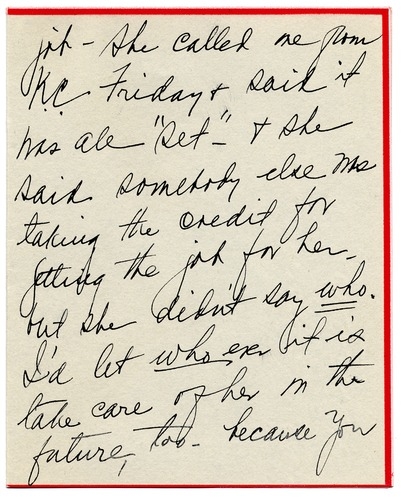 job - She called me from
K.C. Friday & said it
was all "set" - & she
said somebody else was
taking the credit for
getting the job for her -
but she didn't say who.
I'd let who ever it is
take care of her in the
future, too - because you